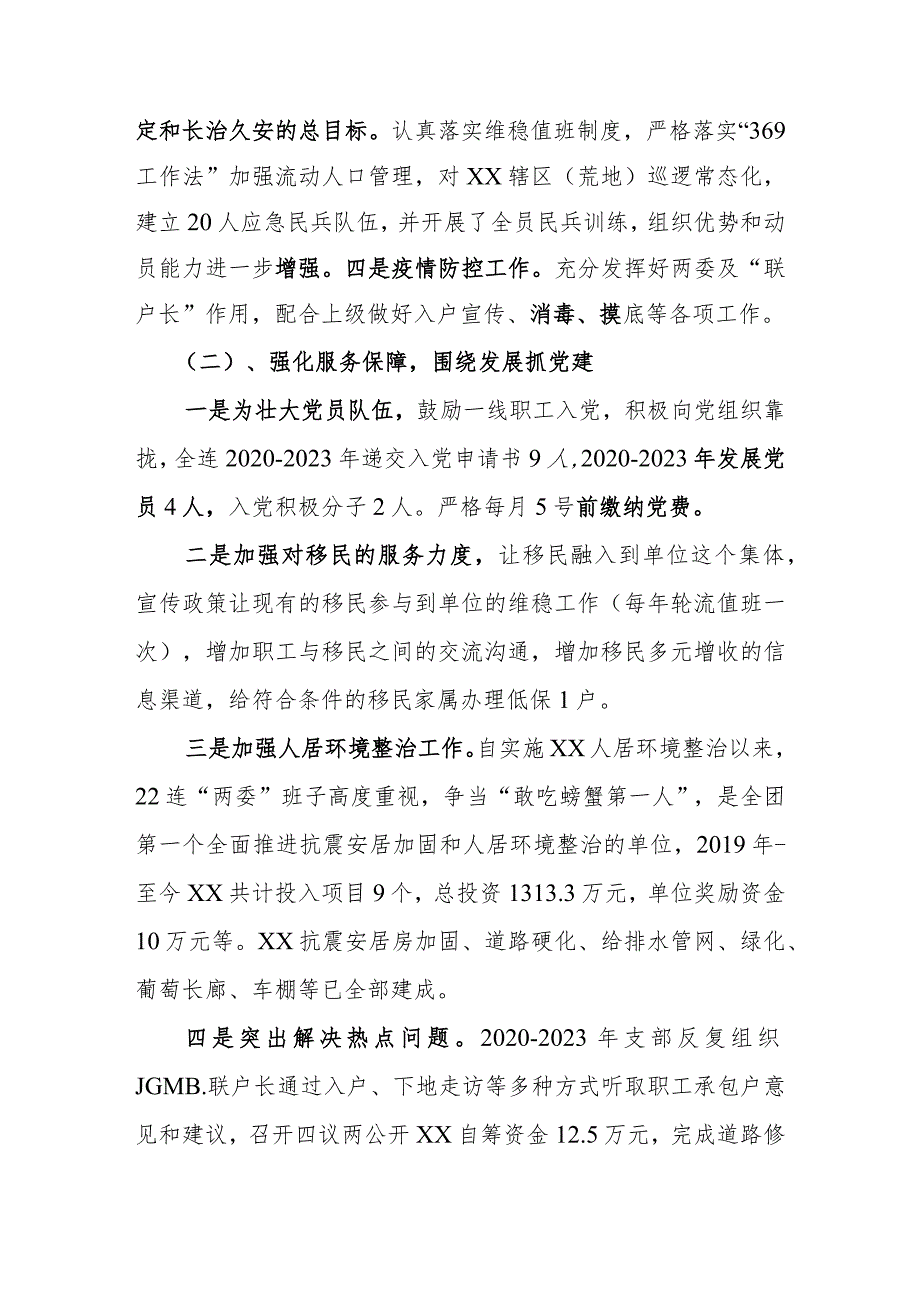 定和长治久安的总目标。认真落实维稳值班制度，严格落实“369
工作法”加强流动人口管理，对 XX 辖区（荒地）巡逻常态化，
建立 20 人应急民兵队伍，并开展了全员民兵训练，组织优势和动
员能力进一步增强。四是疫情防控工作。充分发挥好两委及“联
户长”作用，配合上级做好入户宣传、消毒、摸底等各项工作。
（二）、强化服务保障，围绕发展抓党建
一是为壮大党员队伍，鼓励一线职工入党，积极向党组织靠
拢，全连 2020-2023 年递交入党申请书 9 人,2020-2023 年发展党
员 4 人，入党积极分子 2 人。严格每月 5 号前缴纳党费。
二是加强对移民的服务力度，让移民融入到单位这个集体，
宣传政策让现有的移民参与到单位的维稳工作（每年轮流值班一
次），增加职工与移民之间的交流沟通，增加移民多元增收的信
息渠道，给符合条件的移民家属办理低保 1 户。
三是加强人居环境整治工作。自实施 XX 人居环境整治以来，
22 连“两委”班子高度重视，争当“敢吃螃蟹第一人”，是全团
第一个全面推进抗震安居加固和人居环境整治的单位，2019 年-
至今 XX 共计投入项目 9 个，总投资 1313.3 万元，单位奖励资金
10 万元等。XX 抗震安居房加固、道路硬化、给排水管网、绿化、
葡萄长廊、车棚等已全部建成。
四是突出解决热点问题。2020-2023 年支部反复组织
JGMB.联户长通过入户、下地走访等多种方式听取职工承包户意
见和建议，召开四议两公开 XX 自筹资金 12.5 万元，完成道路修